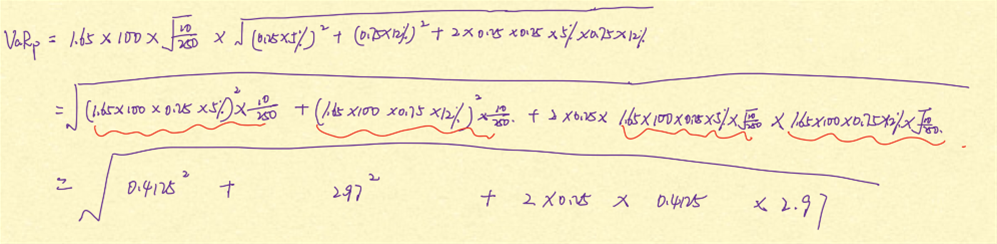 VaRp = 1.65 × 100 × √(10/250) × √((0.25×5%)² + (0.75×12%)² + 2 × 0.25 × 0.25 × 5% × 0.75 × 12%)
= √((1.65×100×0.25×5%)² × 10/250 + (1.65×100×0.75×12%)² × 10/250 + 2 × 0.25 × 1.65×100×0.25×5%×√(10/250) × 1.65×100×0.75×12%×√(10/250))
= √(0.4125² + 2.97² + 2 × 0.25 × 0.4125 × 2.97)